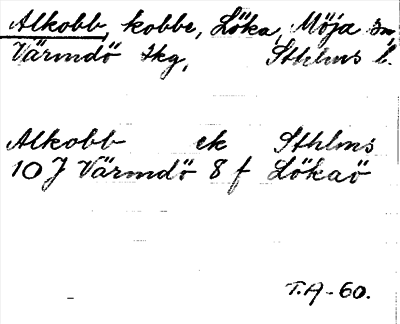 Alkobb, kobbe, Löka, Möja sn,
Värmdö skg, Sthlms l.
Alkobb ek Sthlms
10 J Värmdö 8 f Lökaö
T.A-60.